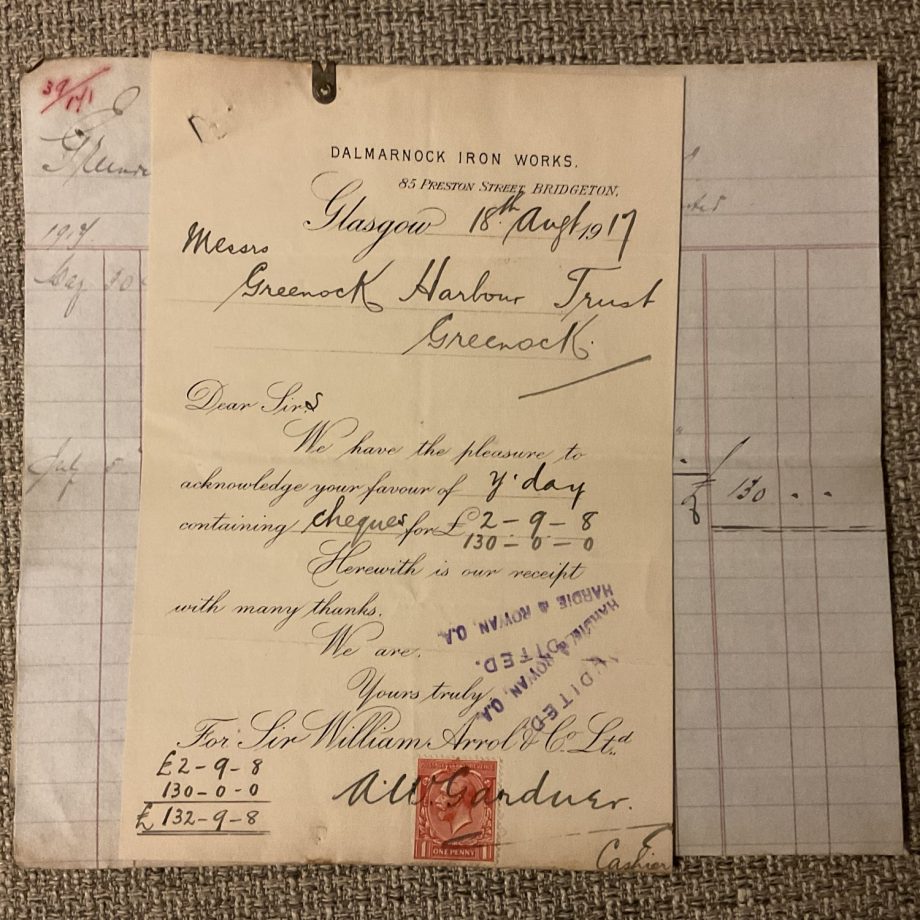 39/171
DALMARNOCK IRON WORKS.
85 PRESTON STREET, BRIDGETON,
Glasgow 18th Augt 1917
Messrs
Greenock Harbour Trust
Greenock.
Dear Sirs
We have the pleasure to
acknowledge your favour of y'day
containing cheques for £2-9-8
130-0-0
Herewith is our receipt
with many thanks.
We are,
Yours truly,
For Sir William Arrol & Co. Ltd
£2-9-8
130-0-0
£132-9-8
A.W. Gardner.
Cashier
ONE PENNY
1 1
HARDIE & ROWAN, C.A.
AUDITED.
HARDIE & ROWAN, C.A.
AUDITED.
1917
July 5
£ 130 . .